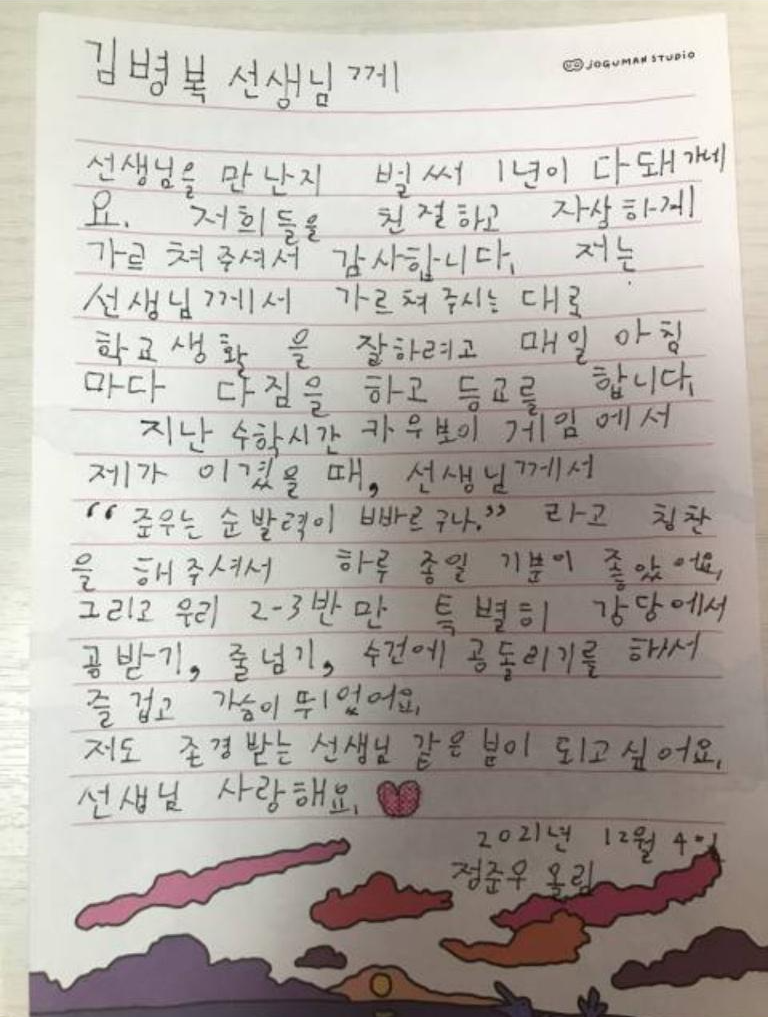 김병복 선생님께
JOGUMAN STUDIO
선생님을 만난지 벌써 1년이 다돼가네
요. 저희들을 친절하고 자상하게
가르쳐주셔서 감사합니다. 저는
선생님께서 가르쳐주시는 대로
학교생활을 잘하려고 매일 아침
마다 다짐을 하고 등교를 합니다.
지난 수학시간 카우보이 게임에서
제가 이겼을 때, 선생님께서
“준우는 순발력이 빠르구나.” 라고 칭찬
을 해주셔서 하루종일 기분이 좋았어요.
그리고 우리 2-3반만 특별히 강당에서
공받기, 줄넘기, 수건에 공돌리기를 해서
즐겁고 가슴이 뛰었어요.
저도 존경받는 선생님 같은 분이 되고싶어요.
선생님 사랑해요.
2021년 12월 4일
정준우 올림